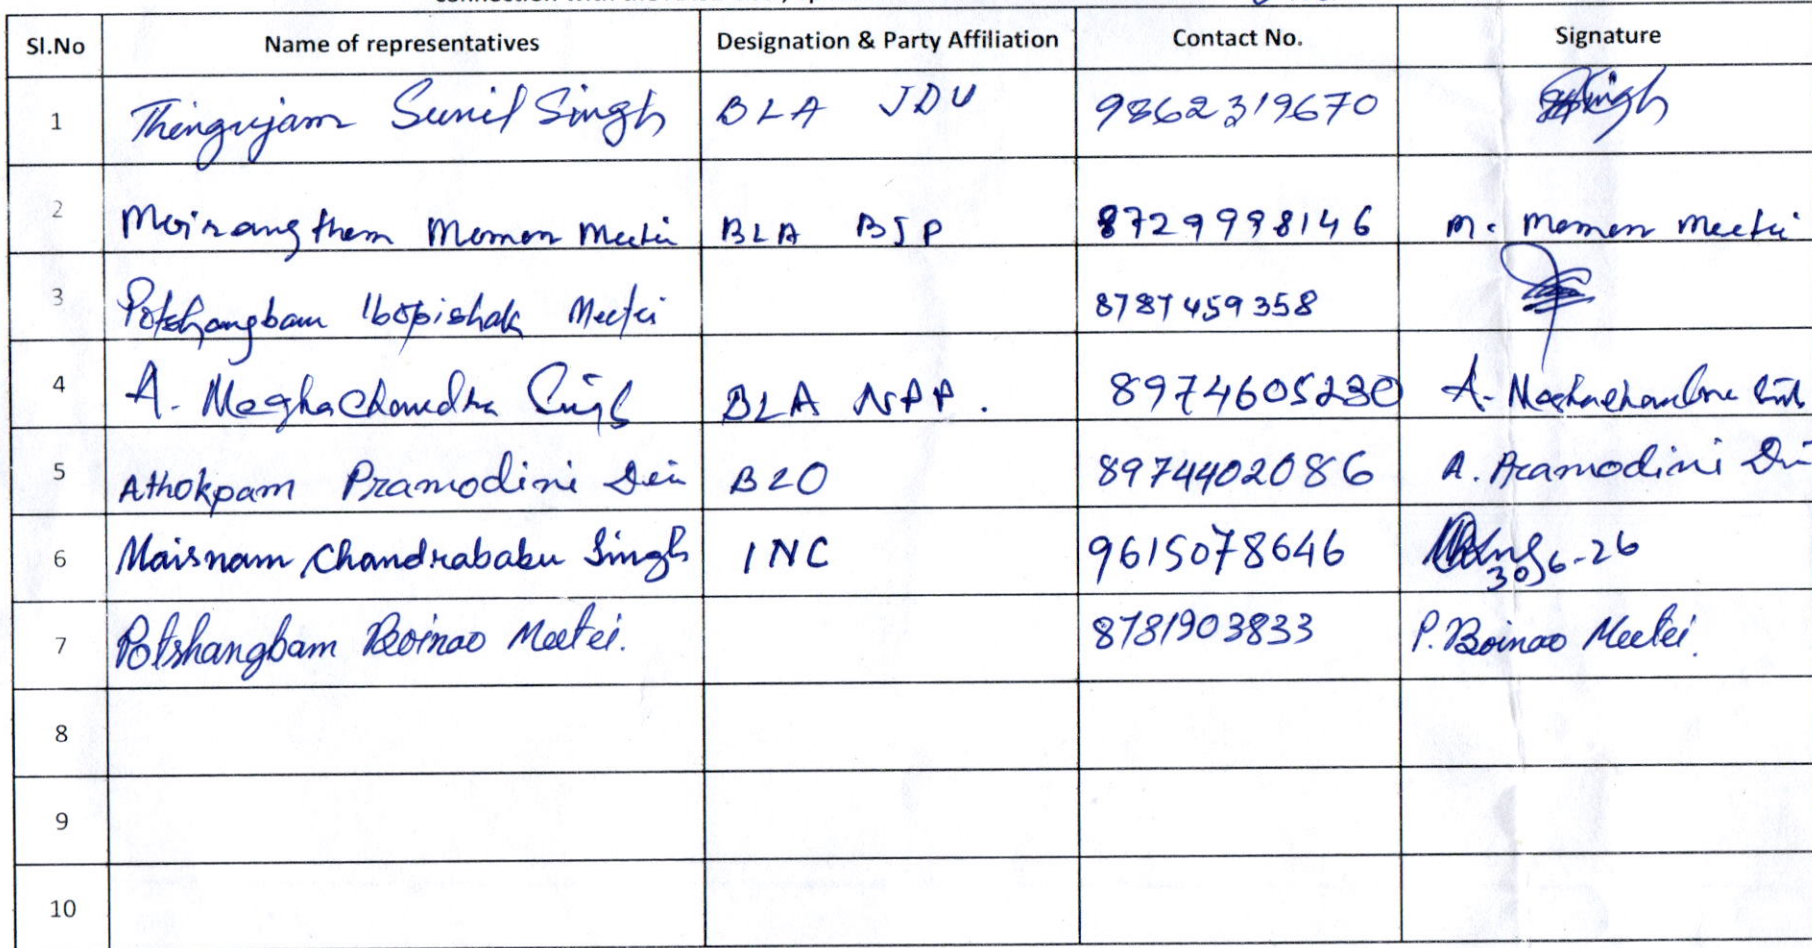 Sl.No Name of representatives Designation & Party Affiliation Contact No. Signature
1 Thingujam Sunil Singh BLA JDU 9862319670
2 Moirangthem Momon Meetei BLA BJP 8729998146 M. Momon Meetei
3 Potshangbam Ibopishak Meetei 8787459358
4 A. Meghachandra Singh BLA NPP. 8974605230 A. Meghachandra
5 Athokpam Pramodini Devi BLO 8974402086 A. Pramodini
6 Maisnam Chandrababu Singh INC 9615078646 30/6-26
7 Potshangbam Boinao Meetei. 8781903833 P. Boinao Meetei.
8
9
10